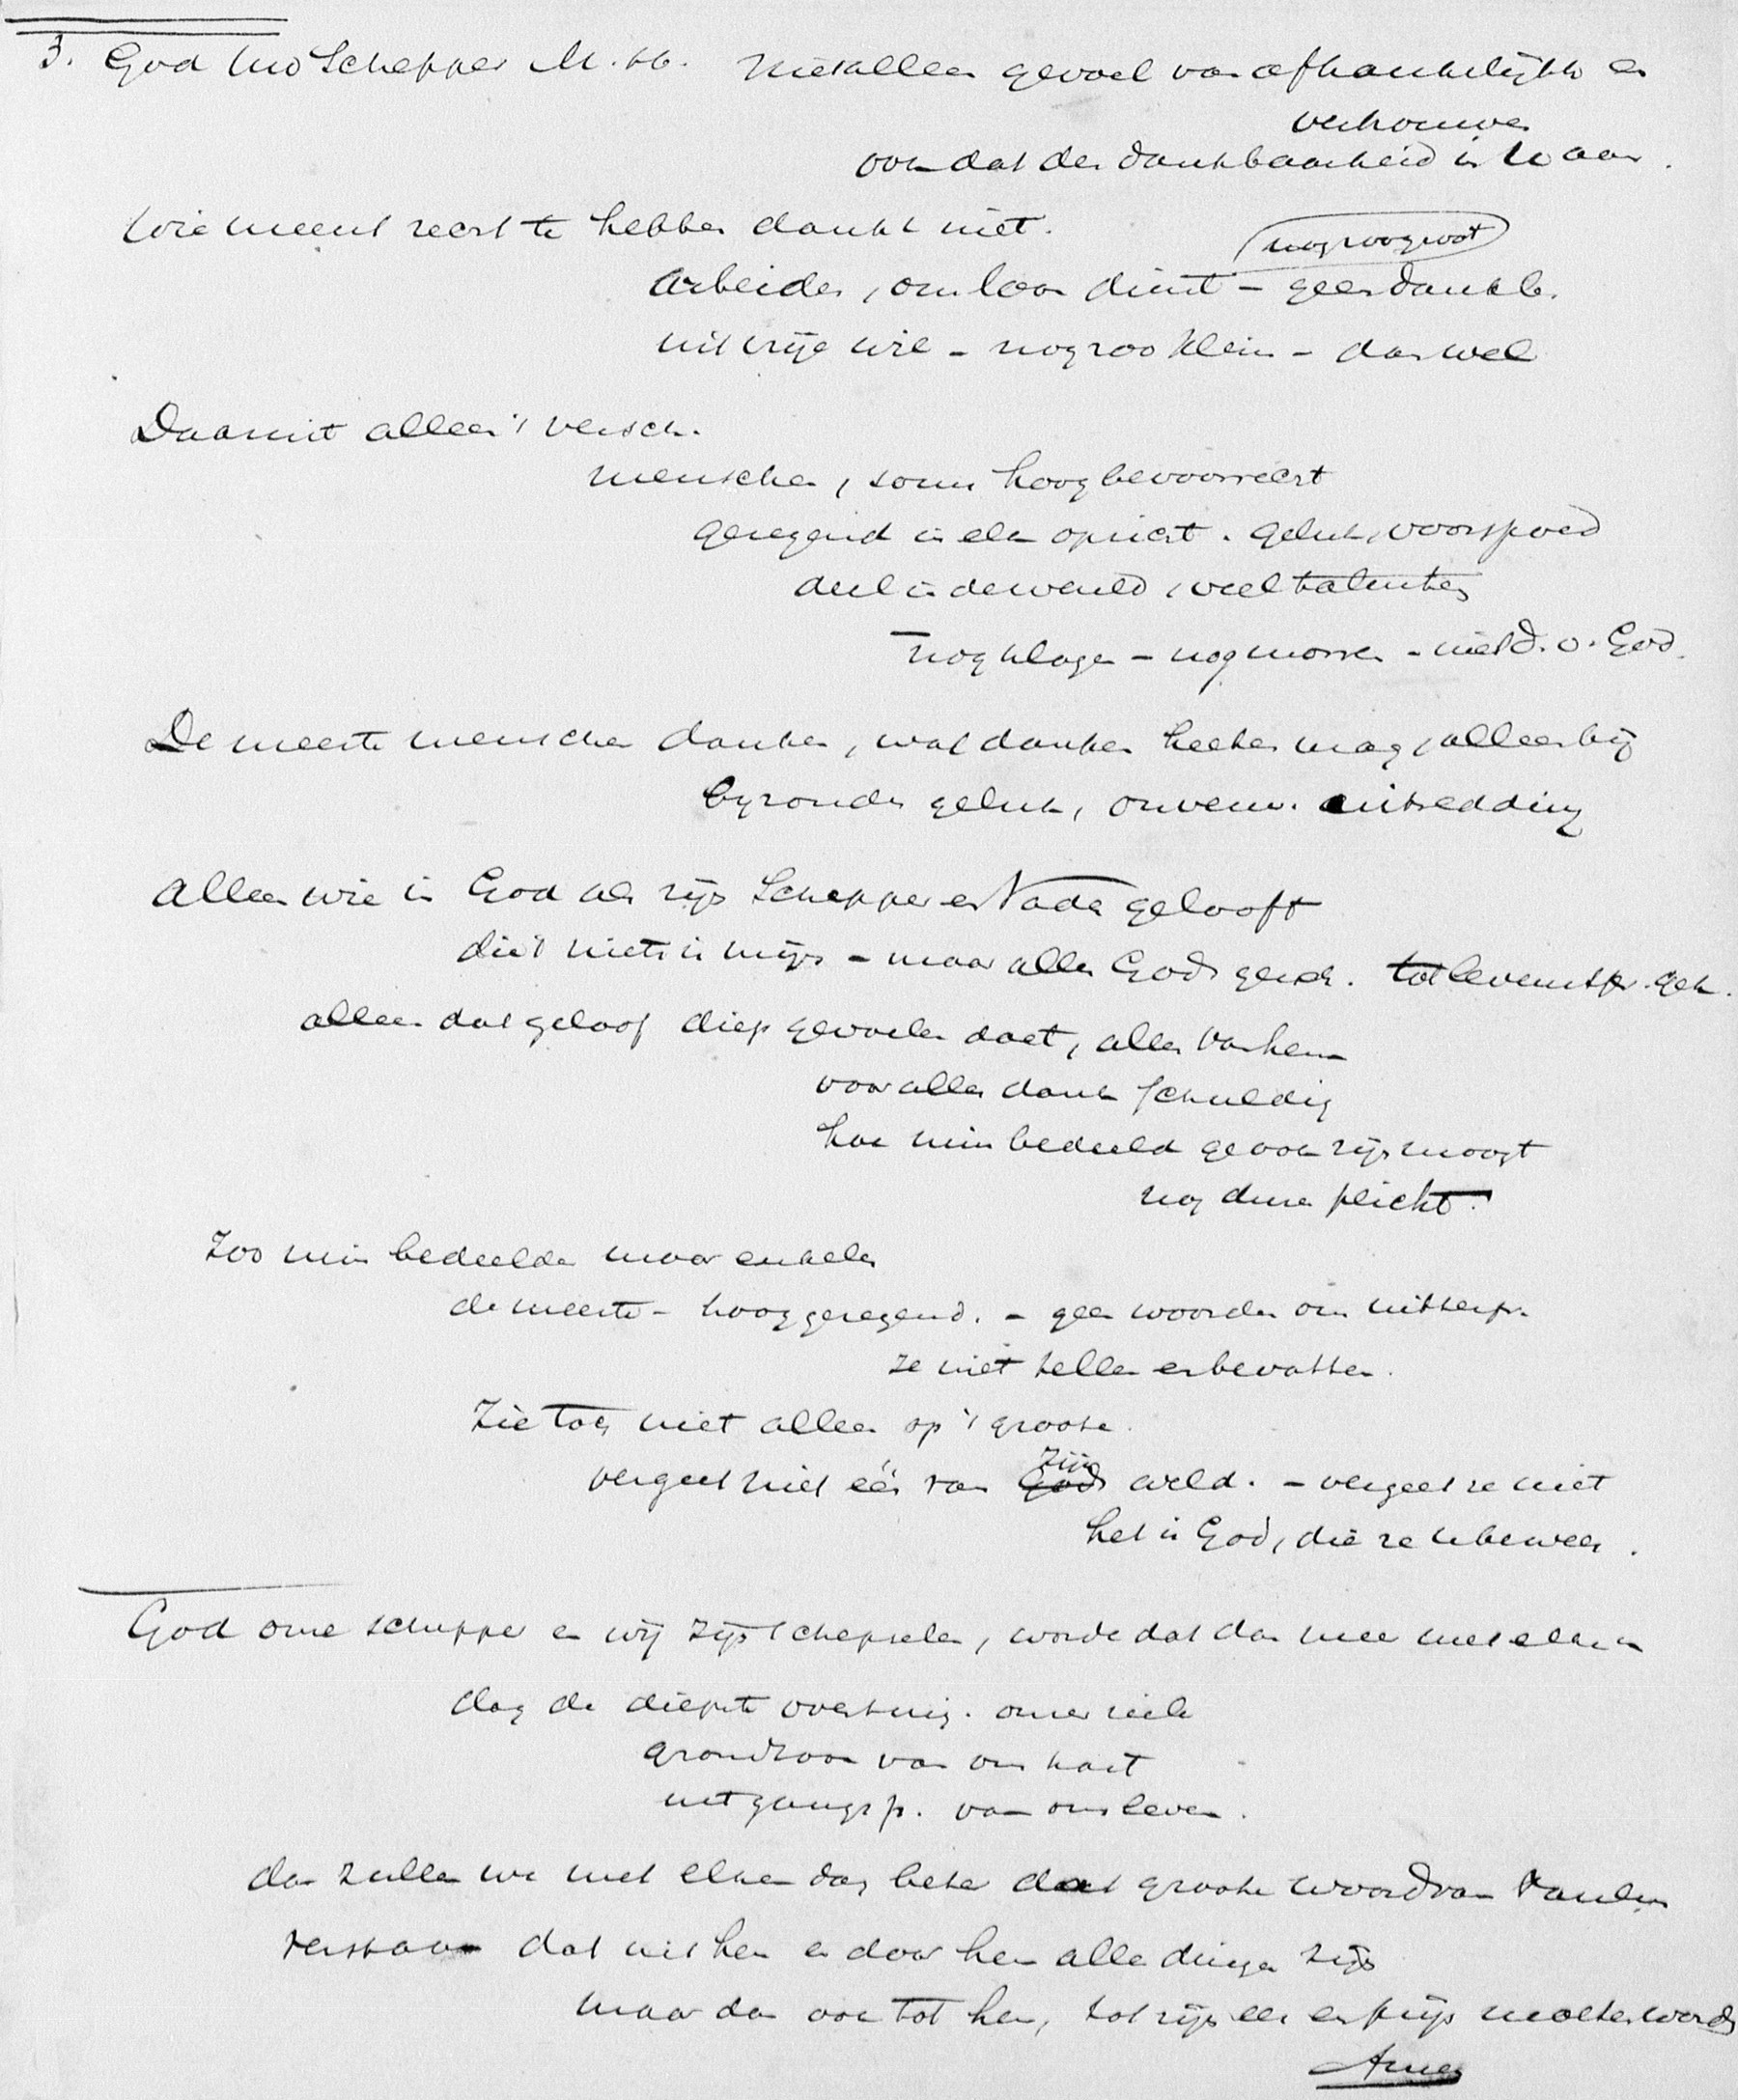 3. God uw Schepper M. H. Niet alleen gevoel van afhankelijkh en
vertrouwen
ook dat der dankbaarheid in U aan.
Wie meent recht te hebben dankt niet.
nog zoo groot
Arbeider, om loon dient – geen dankb.
uit vrije wil – nog zoo klein – dan wel
Daaruit alleen 't versch.
menschen, soms hoog bevoorrecht
gezegend in elk opzicht. geluk, voorspoed
deel in de wereld, veel talenten
nog klagen – nog morren – niet d. v. God.
De meeste menschen danken, wat danken heeten mag, alleen bij
byzonder geluk, onverw. uitredding
Alleen wie in God als zijn Schepper en Vader gelooft
die 't niets is mijn – maar alles Gods gesch. tot levenstijdp. gek.
alleen dat geloof diep gevoelen doet, alles van hem
voor alles dank schuldig
hoe min bedeeld ge ook zijn moogt
nog dure plicht.
Zoo min bedeelden maar enkelen
de meeste – hoog gezegend. – geen woorden om uit te spr.
ze niet tellen en bevatten.
Zie toch niet alleen op 't groote.
Zijn
vergeet niet één van Gods weld. – vergeet ze niet
het is God, die ze U bewees.
God onze schepper en wij zijn schepselen, worde dat dan meer met elken
dag de diepste overtuig. onzer ziele
grondtoon van ons hart
uitgangsp. van ons leven.
dan zullen we met elken dag beter dat groote woord van Paulus
verstaan dat uit hem en door hem alle dingen zijn
maar dan ook tot hem, tot zijn eer en prijs moeten worden
Amen